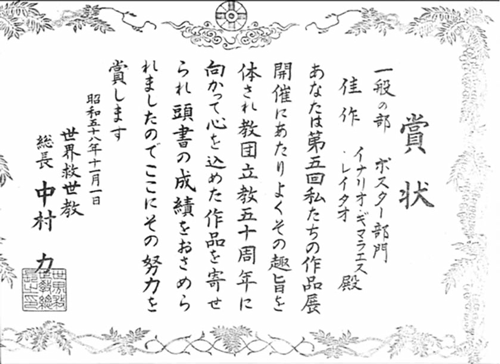 賞状
一般の部 ポスター部門
佳作 イナリオ・ギマラエス・レイタオ 殿
あなたは第五回私たちの作品展
開催にあたりよくその趣旨を
体され教団立教五十周年に
向かって心を込めた作品を寄せ
られ頭書の成績をおさめら
れましたのでここにその努力を
賞します
昭和五十八年十一月一日
世界救世教
総長 中村 力